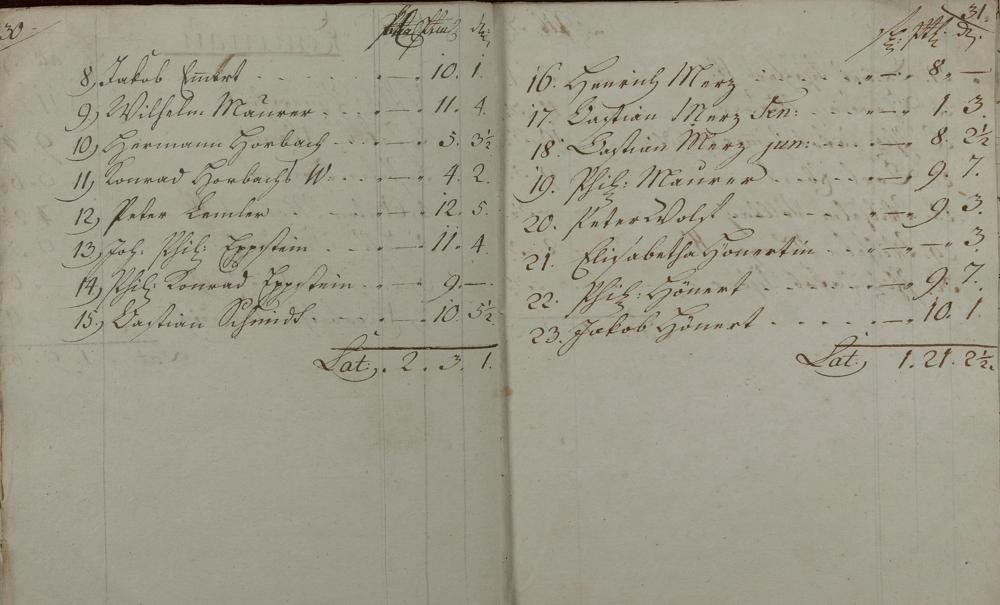 30
8, Jakob Emert - 10. 1.
9, Wilhelm Maurer - 11. 4.
10, Hermann Horbach - 5. 3½
11, Konrad Horbachs W: - 4. 2.
12, Peter Lemler - 12. 5.
13, Joh. Phil: Eppstein - 11. 4
14, Phil: Konrad Eppstein - 9. —.
15, Bastian Schmidt - 10. 5½
Lat. 2. 3. 1.
31.
16. Henrich Merz - 8. —
17. Bastian Merz Sen: - 1. 3.
18. Bastian Merz jun: - 8. 2½
19. Phil: Maurer - 9. 7.
20. Peter Wolf - 9. 3.
21. Elisabetha Hönertin - — 3.
22. Phil: Hönert - 9. 7.
23. Jakob Hönert - 10. 1.
Lat. 1. 21. 2½.